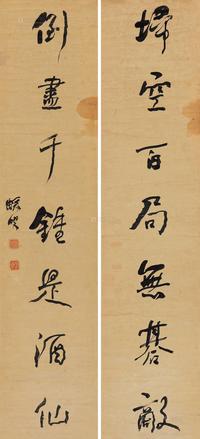 埽空百局無棊敵
倒盡千鍾是酒仙